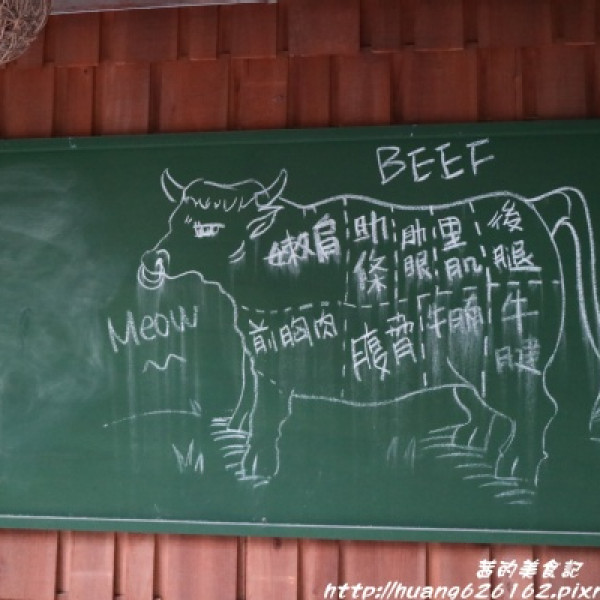 BEEF
嫩肩
肋條
肋眼
里肌
後腿
Meow
前胸肉
腹脅
牛腩
牛腱
茜的美食記
http://huang626162.pixn